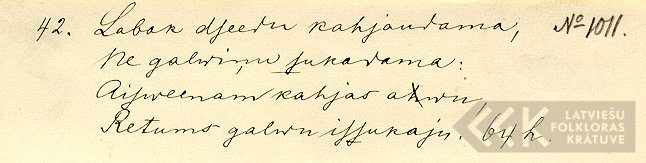 42. Labak dseedu kahjaudama, № 1011.
Ne galwiņu sukadama:
Aisweenam kahjas ahwu,
Retums galwu issukaju. 64 h.
LATVIEŠU
FOLKLORAS
KRĀTUVE